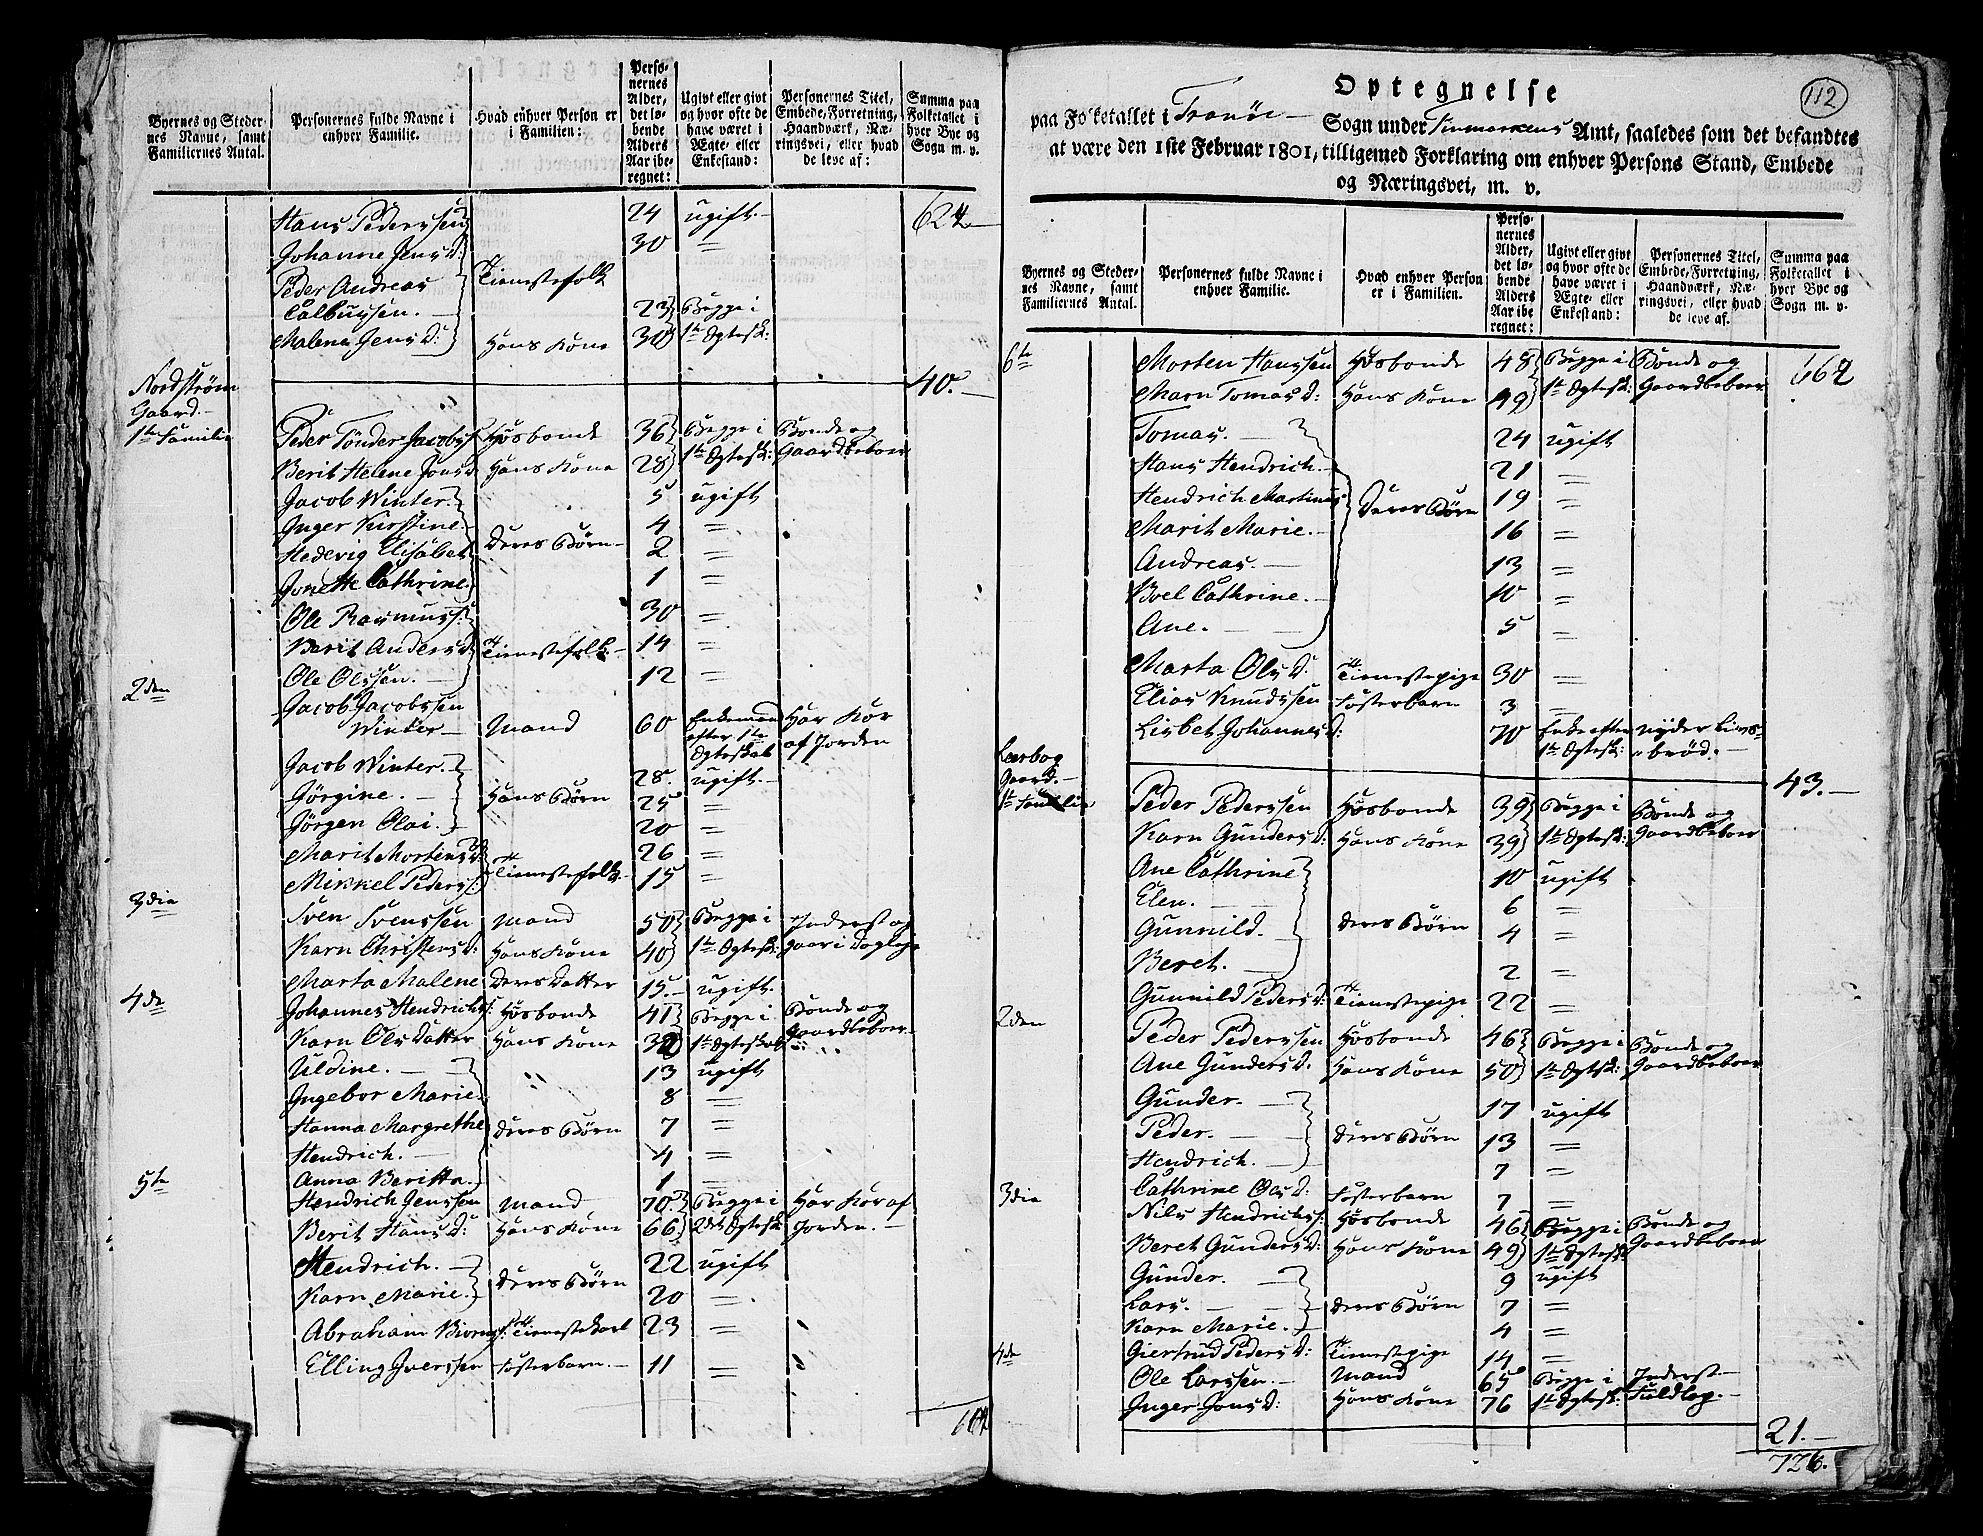 Byernes og Steder-
nes Navne, samt
Familiernes Antal.
Personernes fulde Navne i
enhver Familie.
Hvad enhver Person er
i Familien:
Perso-
nernes
Alder,
det lø-
bende
Alders
Aar ibe-
regnet:
Ugivt eller givt
og hvor ofte de
have været i
Ægte- eller
Enkestand:
Personernes Titel,
Embede, Forretning,
Haandværk, Næ-
ringsvei, eller hvad
de leve af:
Summa paa
Folketallet i
hver Bye og
Sogn m. v.
Hans Pederssen 24 ugift.- 624
Johanne JensD: 30 =
Peder Andreas Tienestefolk
Calbuysen. - 23 Begge i
Malena JensD: Hans Kone 30 1te Ægtesk:
40.-
Nordstrøm
Gaard.-
1te Familie
Peder Tønder Jacobs: Hosbonde 36 Begge i Bonde og
Berit Helene JonsD Hans Kone 28 1te Ægtesk: Gaardbeboer
Jacob Winter. 5 ugift
Inger Kirstine. 4 =
Hedevig Elisabet Deres Børn 2 =
Jonette Cathrine 1 =
Ole Rasmuss: 30 =
Berit AndersD Tienestefolk.- 14 =
Ole Olssen. - 12 =
2den
Jacob Jacobssen
Winter Mand 60 Enkemand Har Kør
efter 1te af Jorden
Ægteskab
Jacob Winter. - 28. ugift.-
Jørgine. - Hans Børn 25 =
Jørgen Olai. - 20 =
Marit MortensD 26 =
Mikkel Peders: Tienestefolk 15 =
3die
Sven Svenssen Mand 50 Begge i Inderst og
Karn ChristensD: Hans Kone 40 1te Ægtesk:
Marta Malene Deres Datter 15.- ugift.
4de
Johannes Hendrichs: Hosbonde 41 Begge i Bonde og
Karn OlsDatter Hans Kone 1te Ægteskab Gaardbeboer
Uldine. - 13 ugift
Ingebor Marie. 8 =
Hanna Margrethe Deres Børn 7 =
Hendrich. - 4 =
Anna Beritta. 1 =
5te
Hendrich Jenssen Mand 70 Begge i Har Kør af
Berit HansD: Hans Kone 66 2det Ægtesk Jorden. -
Hendrich. - 22 ugift
Karn Marie. Deres Børn 20 =
Abraham Tienestekarl 23 =
Elling Iverssen Fosterbarn.- 11 =
112
Optegnelse
paa Folketallet i Tranøe Sogn under Finmarkens Amt, saaledes som det befandtes
at være den 1ste Februar 1801, tilligemed Forklaring om enhver Persons Stand, Embede
og Næringsvei, m. v.
Byernes og Steder-
nes Navne, samt
Familiernes Antal.
Personernes fulde Navne i
enhver Familie.
Hvad enhver Person
er i Familien.
Perso-
nernes
Alder,
det lø-
bende
Alders
Aar ibe-
regnet:
Ugivt eller givt
og hvor ofte de
have været i
Ægte- eller
Enkestand:
Personernes Titel,
Embede, Forretning,
Haandværk, Næ-
ringsvei, eller hvad
de leve af.
Summa paa
Folketallet i
hver Bye og
Sogn m. v.
6te
Morten Hanssen Hosbonde 48 Begge i Bonde og 662
Marn TomasD: Hans Kone 49 1te Ægtesk: Gaardbeboer
Tomas. - 24 ugift
Hans Hendrich. 21 =
Hendrich Martinus Deres Børn 19 =
Marit Marie. - 16 =
Andreas. - 13 =
Boel Cathrine. 10 =
Ane. - - 5 =
Marta OlsD: Tienestepige 30 =
Elias Knudssen Fosterbarn 3 =
Lisbet JohannesD: 70 Enke efter nyder Livs-
1te Ægtesk: brød. -
43.-
Lærbog
Gaard.-
1te Familie
Peder Pederssen Hosbonde 39 Begge i Bonde og
Karn GundersD: Hans Kone 39 1te Ægtesk: Gaardbeboer
Ane Cathrine 10 ugift
Elen. - 6 =
Gunnild. - Deres Børn 4 =
Beret. - 2 =
Gunnild PedersD: Tienestepige 22 =
2den
Peder Pederssen Hosbonde 46 Begge i Bonde og
Ane GundersD. Hans Kone 50 1te Ægtesk: Gaardbeboer
Gunder. - 17 ugift
Peder. - Deres Børn 13 =
Hendrich. - 7 =
Cathrine OlsD: Fosterbarn 7 =
3die
Nils Hendrichs: Hosbonde 46 Begge i Bonde og
Beret GundersD: Hans Kone 49 1te Ægtesk: Gaardbeboer
Gunder. - 9 ugift
Lars. - - Deres Børn 7 =
Karn Marie. - 4 =
Giertrud PedersD: Tienestepige 14 =
4de
Ole Larssen. - Mand 65 Begge i Inderst -
Inger JonsD: Hans Kone 76 1te Ægtesk: Fuldlog.-
21.-
726.